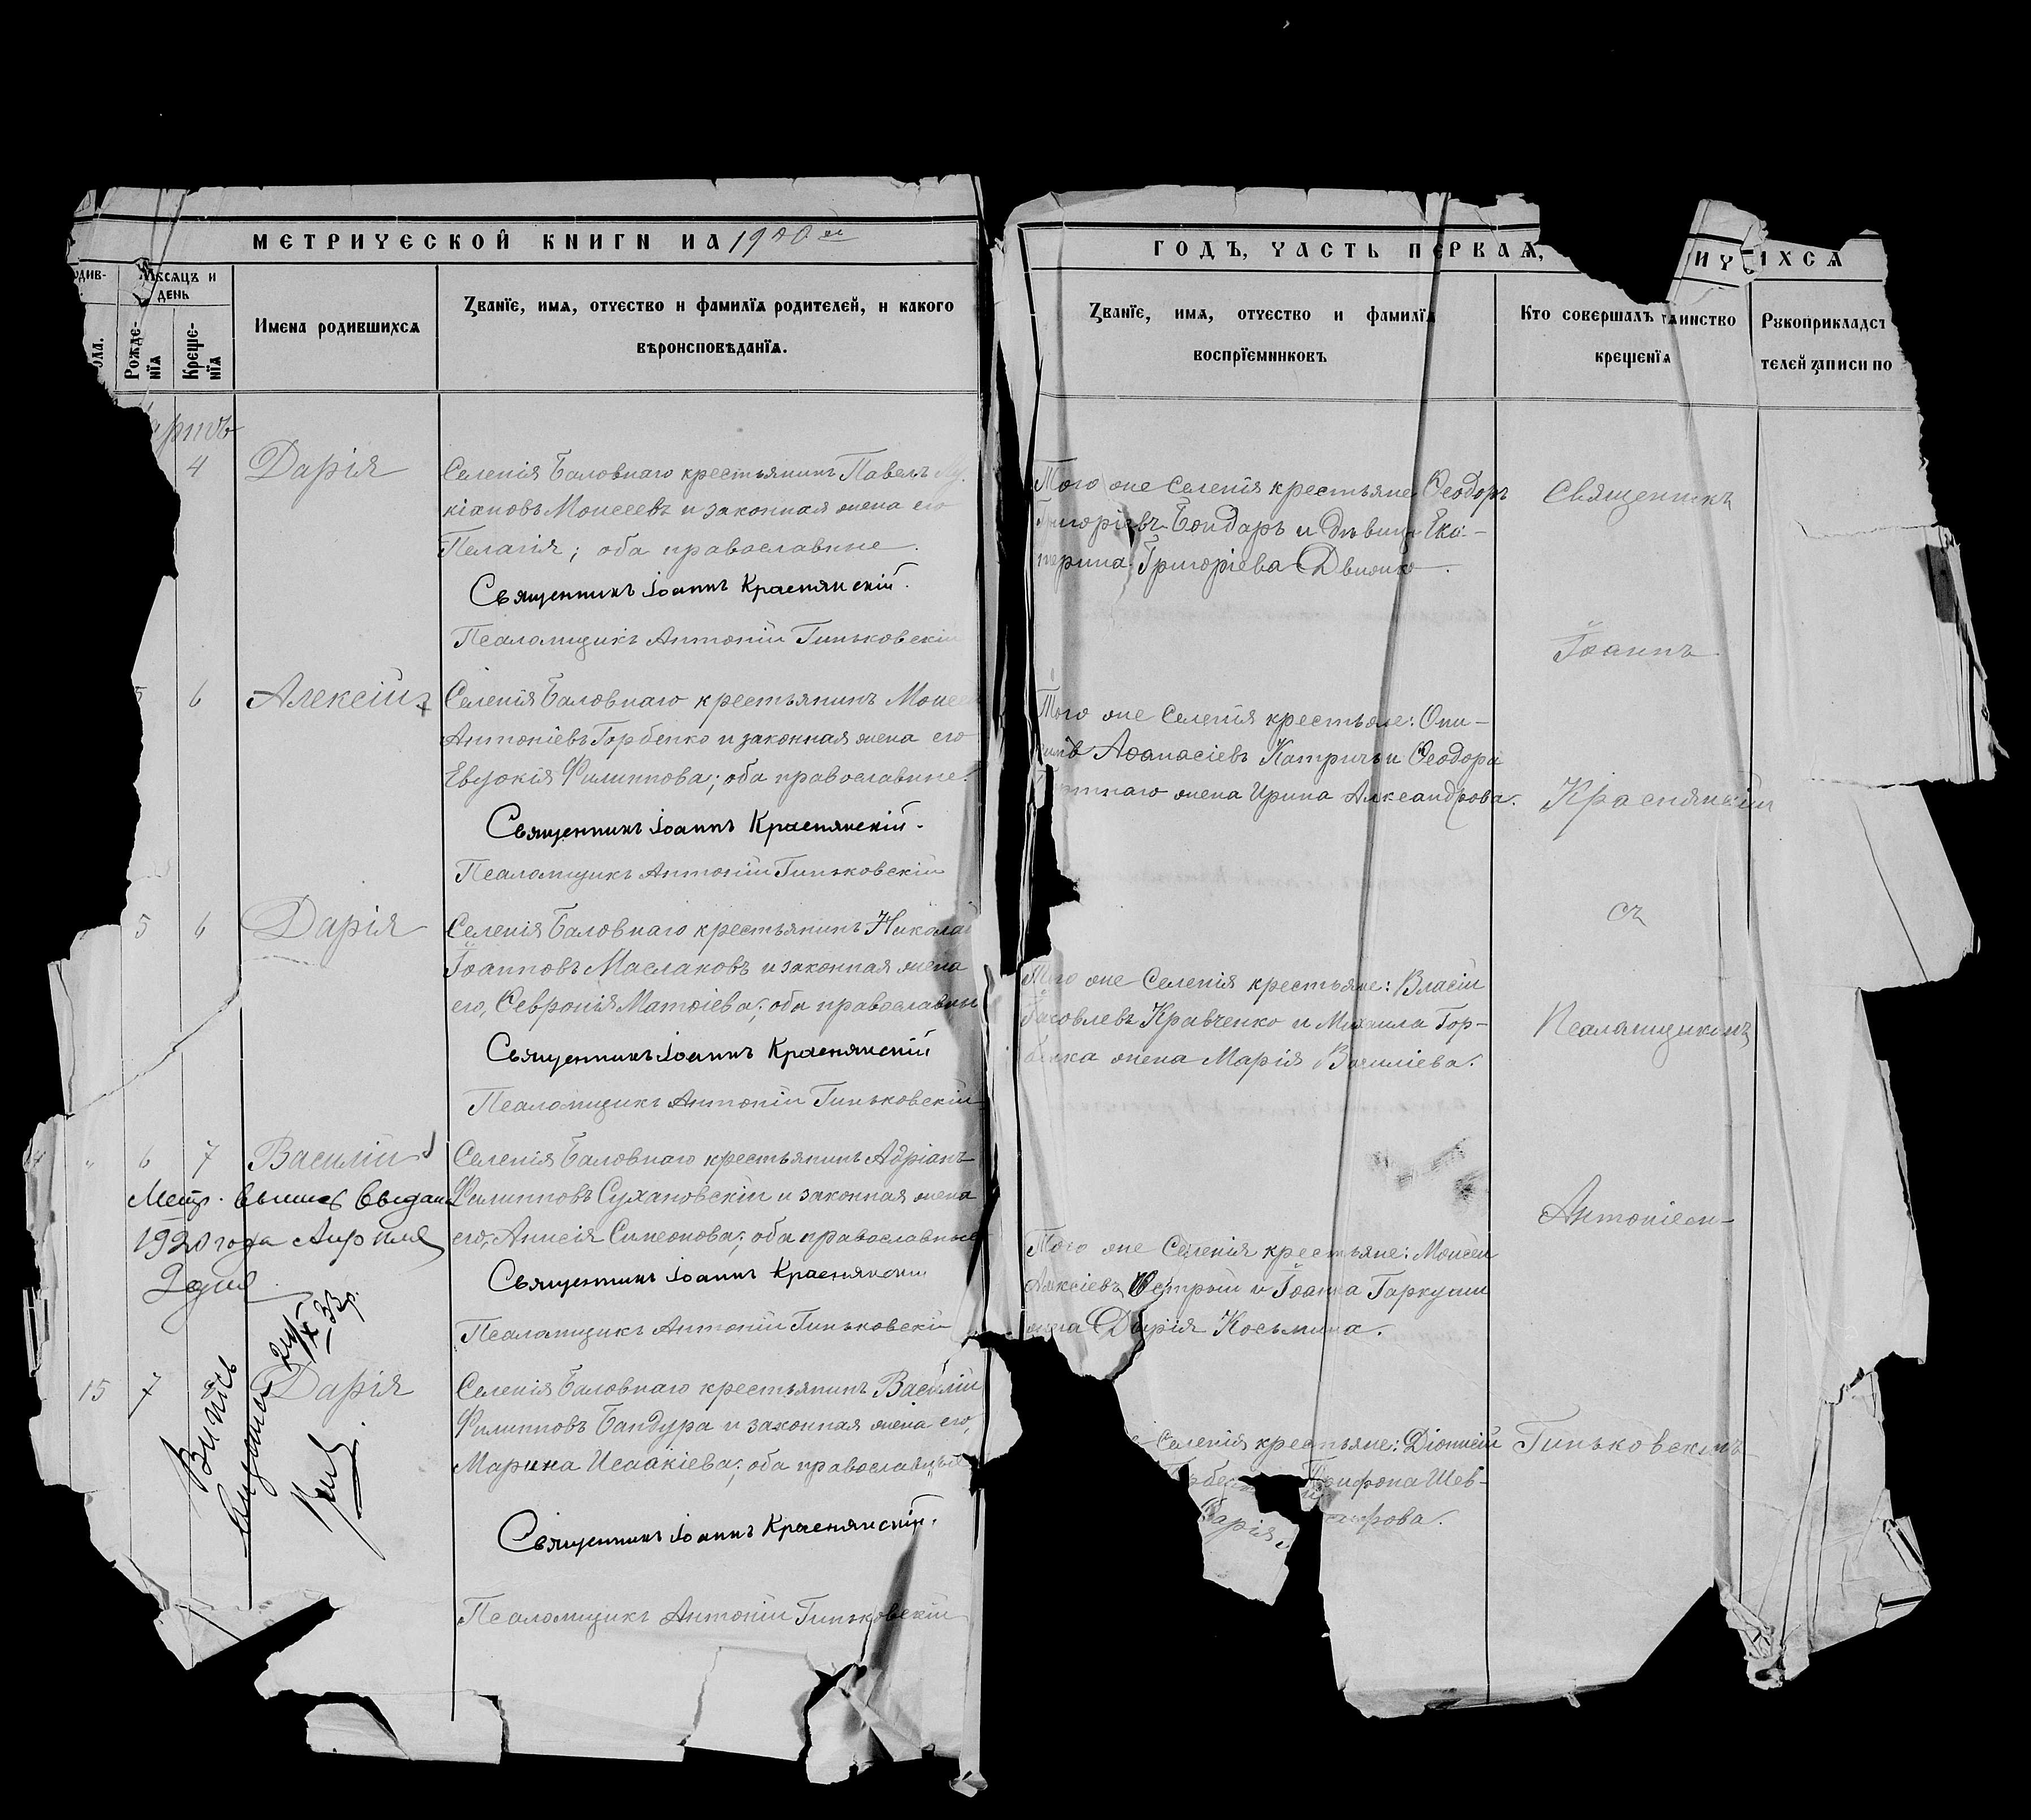 МЕТРИЧЕСКОЙ КНИГИ НА 1900 й
ГОДЪ, ЧАСТЬ ПЕРВАЯ,
ИХСЯ
Мѣсяцъ и
день
Рожде-
нїя
Креще-
нїя
Имена родившихся
Званїе, имя, отчество и фамилїя родителей, и какого
вѣроисповѣданїя.
Званїе, имя, отчество и фамилїя
воспрїемниковъ
Кто совершалъ таинство
крещенїя
Рукоприкладст
телей записи по
4
Дарія
Селенія Баловнаго крестьянинъ Павелъ
кіановъ Моисеевъ и законная жена его
Пелагія; оба православные.
Священникъ Іоаннъ Краснянскій.
Псаломщикъ Антоній Гиньковскій
Того же Селенія крестьяне Ѳеодоръ
Григоріевъ Бондарь и дѣвица Ека-
терина Григоріева
Священникъ
Іоаннъ
5 6
Алексій
Селенія Баловнаго крестьянинъ Моисей
Антоніевъ Горбенко и законная жена его
Евдокія Филиппова; оба православные.
Священникъ Іоаннъ Краснянскій.
Псаломщикъ Антоній Гиньковскій
Того же Селенія крестьяне: Они-
Аѳанасіевъ Катричъ и Ѳеодора
жена Ирина Александрова.
Краснянскій
5 6
Дарія
Селенія Баловнаго крестьянинъ Николай
Іоанновъ Маслаковъ и законная жена
его, Ѳевронія Матѳіева; оба православн
Священникъ Іоаннъ Краснянскій
Псаломщикъ Антоній Гиньковскій
съ
Того же Селенія крестьяне: Власій
Іаковлевъ Кравченко и Михаила Гор-
бенка жена Марія Василіева.
Псаломщикомъ
" 6 7
Василій
Селенія Баловнаго крестьянинъ Адріанъ
Филипповъ Сухановскій и законная жена
его, Анисія Симеонова; оба православные
Священникъ Іоаннъ Краснянскій
Псаломщикъ Антоній Гиньковскій
Метр. выпись выдана
1920 года Апреля
2 дня
Антоніем-
Того же Селенія крестьяне: Моисей
Алексіевъ Острый и Іоанна Гаркуши
жена Дарія Косьмина.
15 7
Дарія
Селенія Баловнаго крестьянинъ Василій
Филипповъ Бандура и законная жена его,
Марина Исаакіева; оба православные
Священникъ Іоаннъ Краснянскій.
Псаломщикъ Антоній Гиньковскій
Селенія крестьяне: Діонисій
Трифона Шев-
Дарія
Гиньковскимъ
Випись